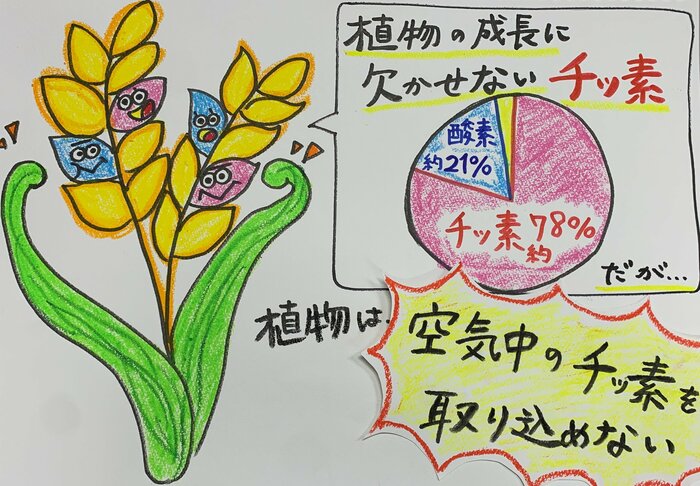 植物の成長に
欠かせないチッ素
酸素
約21%
チッ素78%
約
だが…
植物は、
空気中のチッ素を
取り込めない